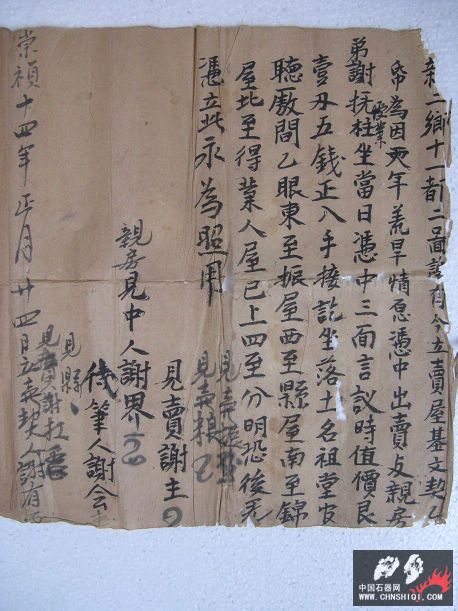 新一鄉十一都二啚謝有今立賣屋基文契乙
帋為因天年荒旱情急憑中出賣与親房
弟謝抚柱坐當日憑中三面言議時值價艮
壹刄五錢正入手接訖坐落土名祖堂
聽敖間乙眼東至振屋西至縣屋南至錦
屋北至得業人屋已上四至分明恐後无
憑立此永為照用
見賣
見賣謝主
親房見中人謝界
代筆人謝會
見縣
見賣謝扛
崇禎十四年正月廿四日立賣契人謝有
中国石器网
WWW.CHNSHIQI.COM